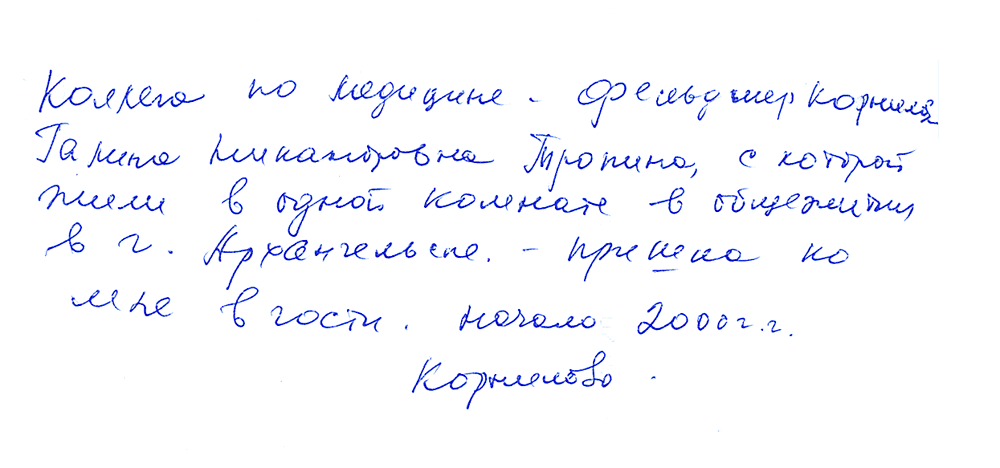 Коллега по медицине - фельдшер Корнилова
Галина Никаноровна Тропина, с которой
жили в одной комнате в общежитии
в г. Архангельске. - пришла ко
мне в гости. начало 2000 г.г.
Корнилово.